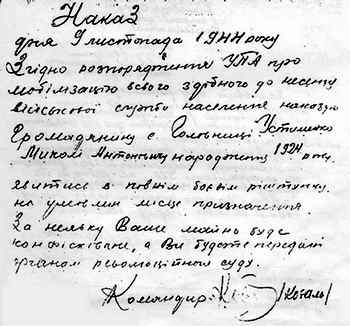 Наказ
дня 9 листопада 1944 року
Згідно розпорядження УПА про
мобілізацію всього здібного до несення
військової служби населення наказую
громадянину с. Головниці Устименко
Миколі Антоновичу народження 1924 року.
явитись в повнім боєвім риштунку
на умовлен місце призначення.
За неявку Ваше майно буде
конфісковане, а Ви будете передані
органам революційного суду.
Командир /Коваль/